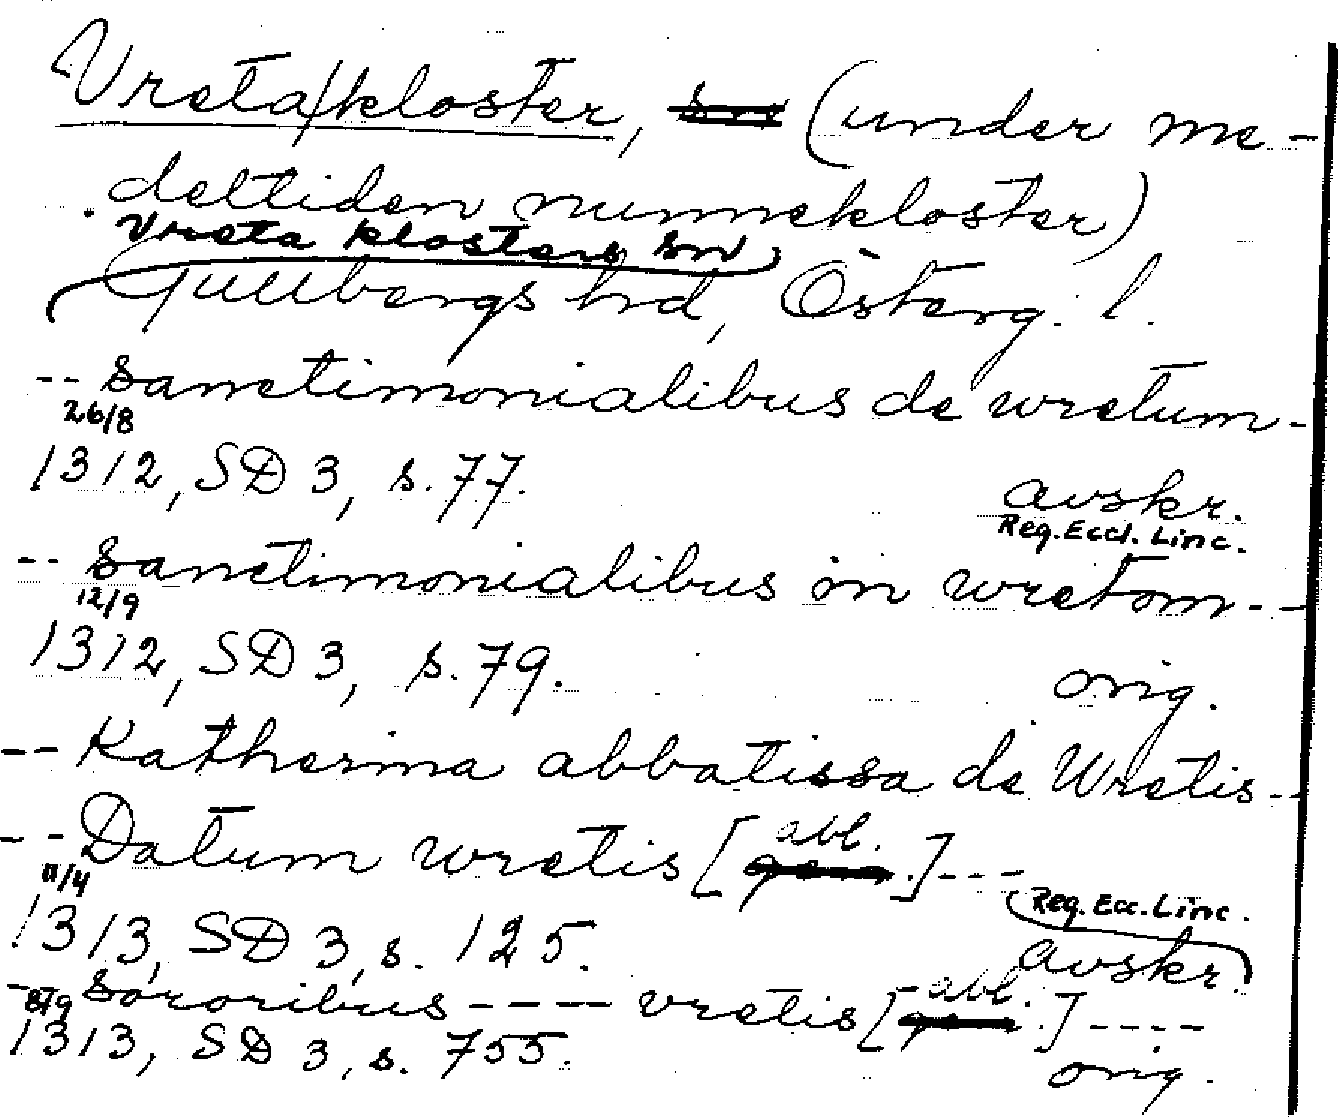 Vreta/kloster, sn (under me-
deltiden nunnekloster)
Vreta klosters sn
Gullbergs hrd, Österg. l.
-- sanctimonialibus de wretum-
26/8
1312, SD 3, s. 77.
avskr.
Reg. Eccl. Linc.
-- sanctimonialibus in wretom--
12/9
1312, SD 3, s. 79.
orig.
-- Katherina abbatissa de Wretis--
-- Datum wretis [gen. abl.]---
11/4
1313, SD 3, s. 125.
Reg. Ecc. Linc.
avskr.
-- sororibus ---- vretis [gen. abl.]----
8/9
1313, SD 3, s. 755.
orig.